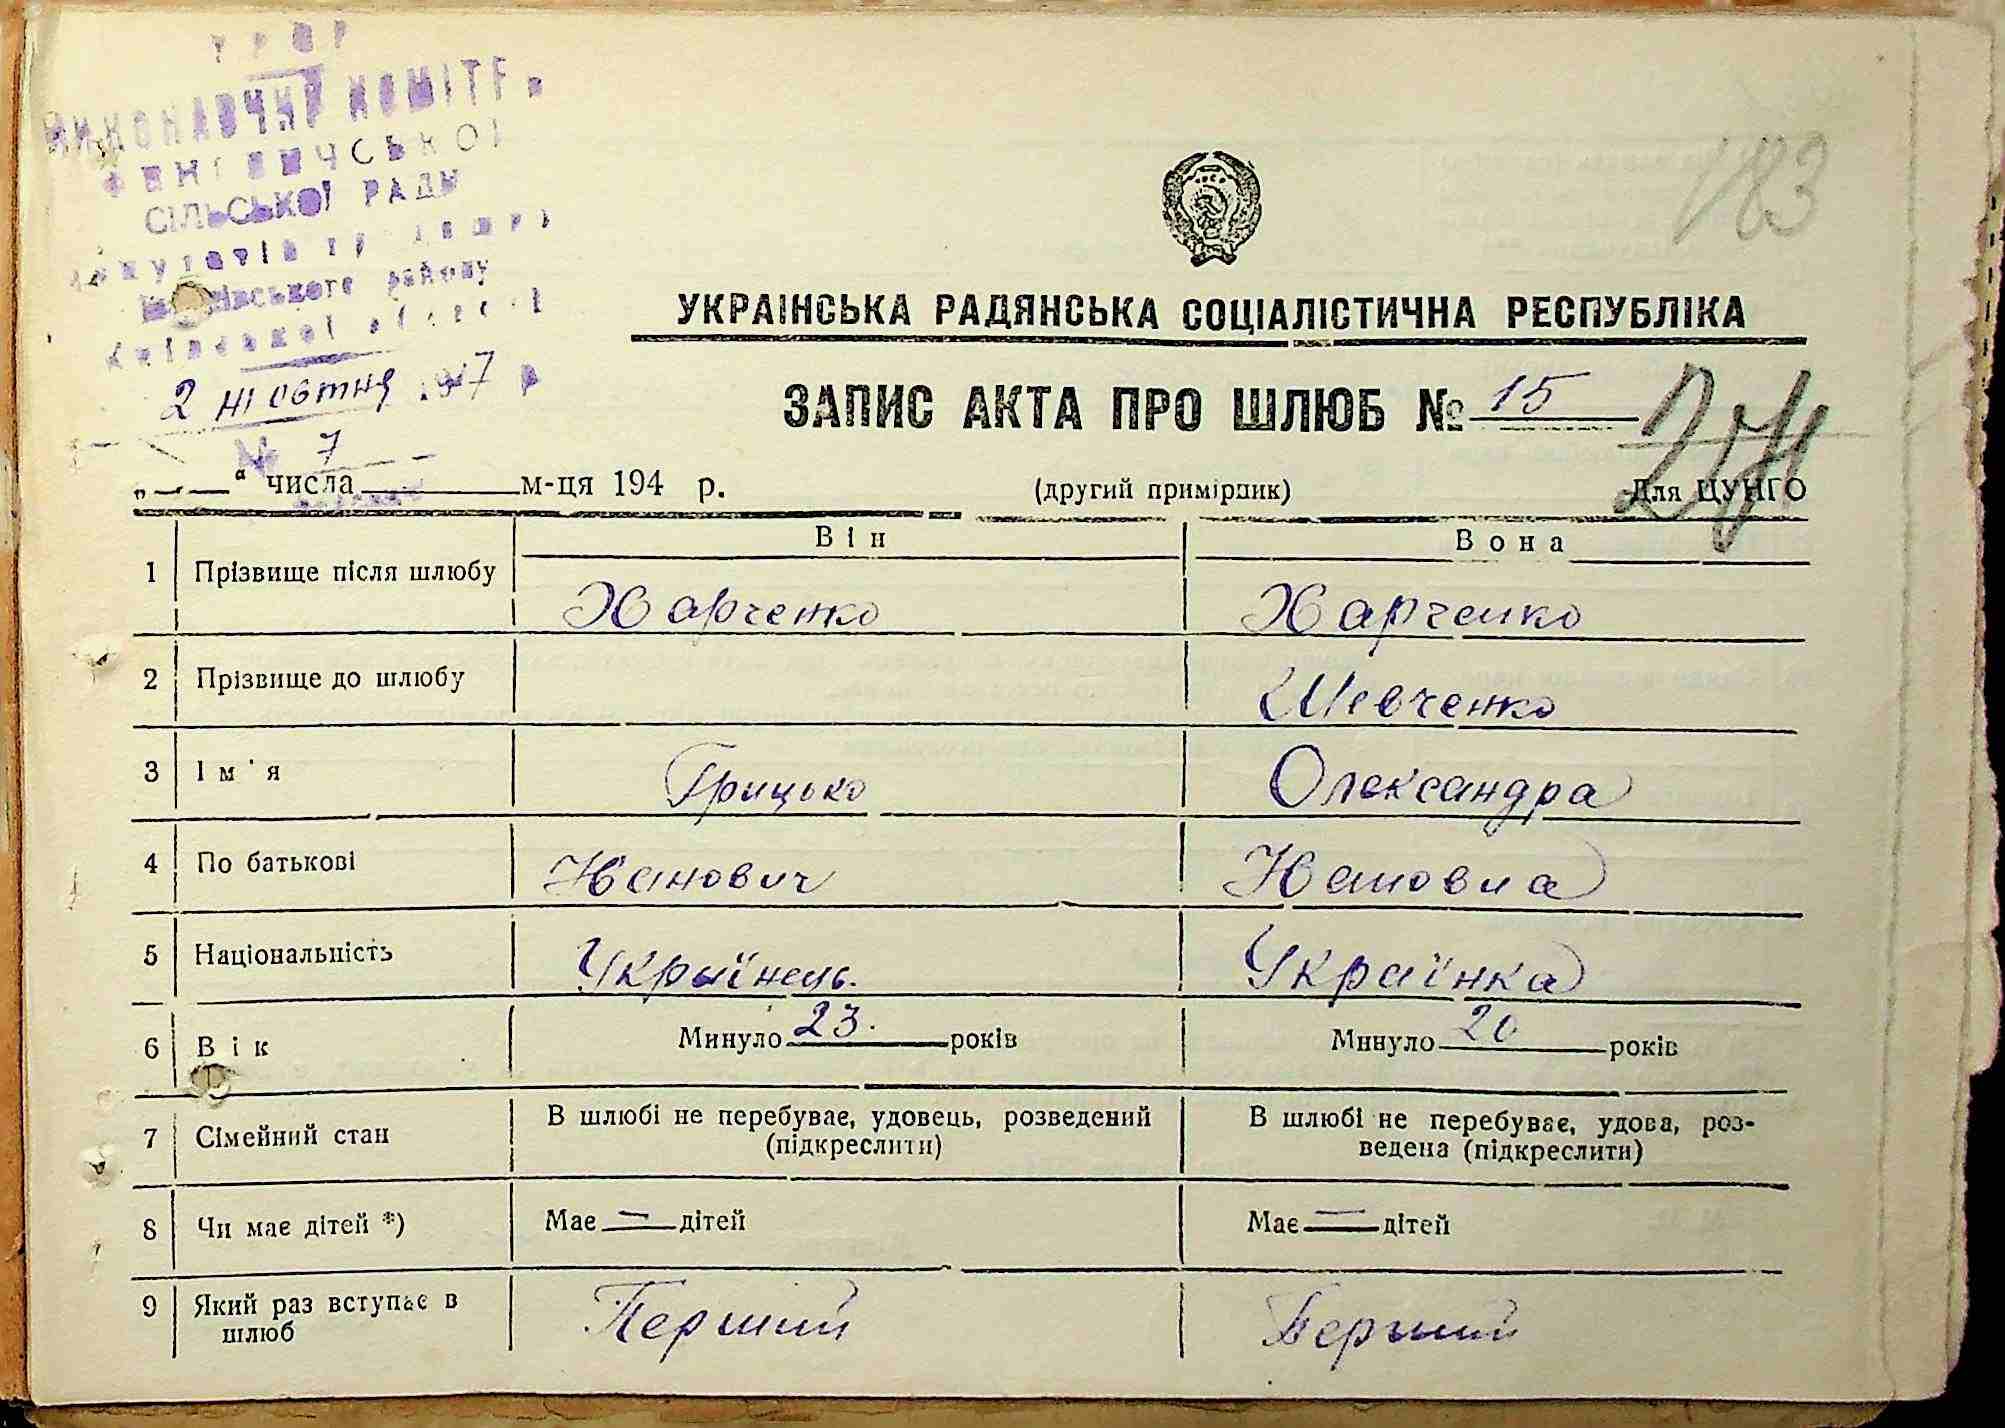 УРСР
ВИКОНАВЧИЙ КОМІТЕТ
СІЛЬСЬКОЇ РАДИ
депутатів трудящих
району
Київської області
2 жовтня 1947 р
№ 7
183
УКРАІНСЬКА РАДЯНСЬКА СОЦІАЛІСТИЧНА РЕСПУБЛІКА
ЗАПИС АКТА ПРО ШЛЮБ № 15
„ “ числа м-ця 194 р. (другий примірник) Для ЦУНГО
Він Вона
1 Прізвище після шлюбу Харченко Харченко
2 Прізвище до шлюбу Шевченко
3 Ім'я Грицько Олександра
4 По батькові Іванович Івановна
5 Національність Українець. Українка
6 Вік Минуло 23. років Минуло 20 років
7 Сімейний стан В шлюбі не перебуває, удовець, розведений (підкреслити) В шлюбі не перебуває, удова, роз-
ведена (підкреслити)
8 Чи має дітей *) Має — дітей Має — дітей
9 Який раз вступає в шлюб Перший Перший